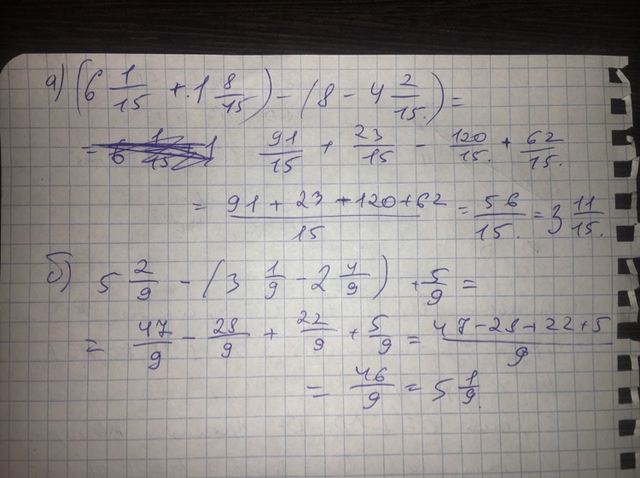 а) (6 1/15 + 1 8/15) - (8 - 4 2/15) =
= 91/15 + 23/15 - 120/15 + 62/15
= 91 + 23 + 120 + 62 / 15 = 56/15 = 3 11/15
б) 5 2/9 - (3 1/9 - 2 4/9) + 5/9 =
= 47/9 - 28/9 + 22/9 + 5/9 = 47 - 28 + 22 + 5 / 9
= 46/9 = 5 1/9